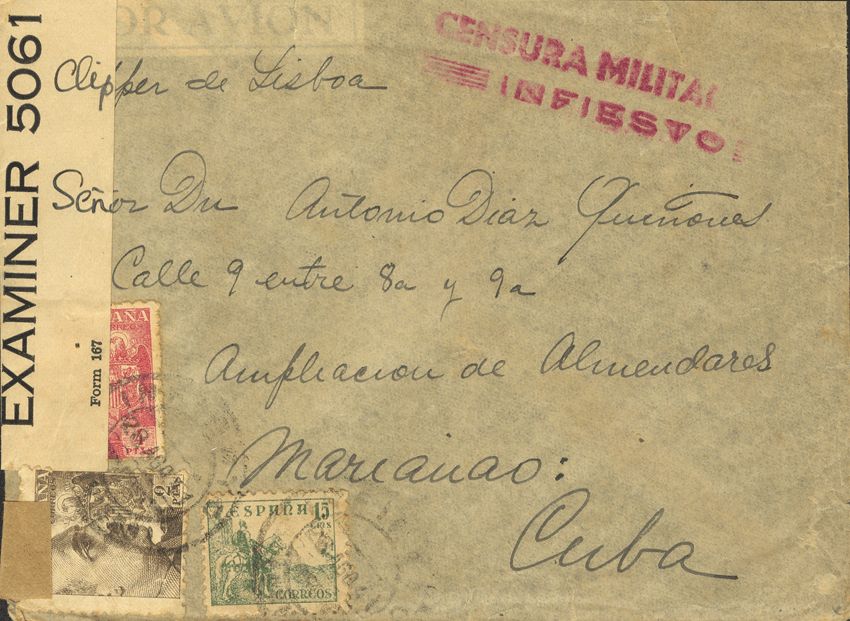 POR AVION
CENSURA MILITAR
INFIESTO
EXAMINER 5061
Form 167
Clipper de Lisboa
Señor Dn Antonio Diaz Quiñones
Calle 9 entre 8a y 9a
Ampliacion de Almendares
Marianao:
Cuba
CORREOS
PTAS
ESPAÑA 15
CTS
CORREOS